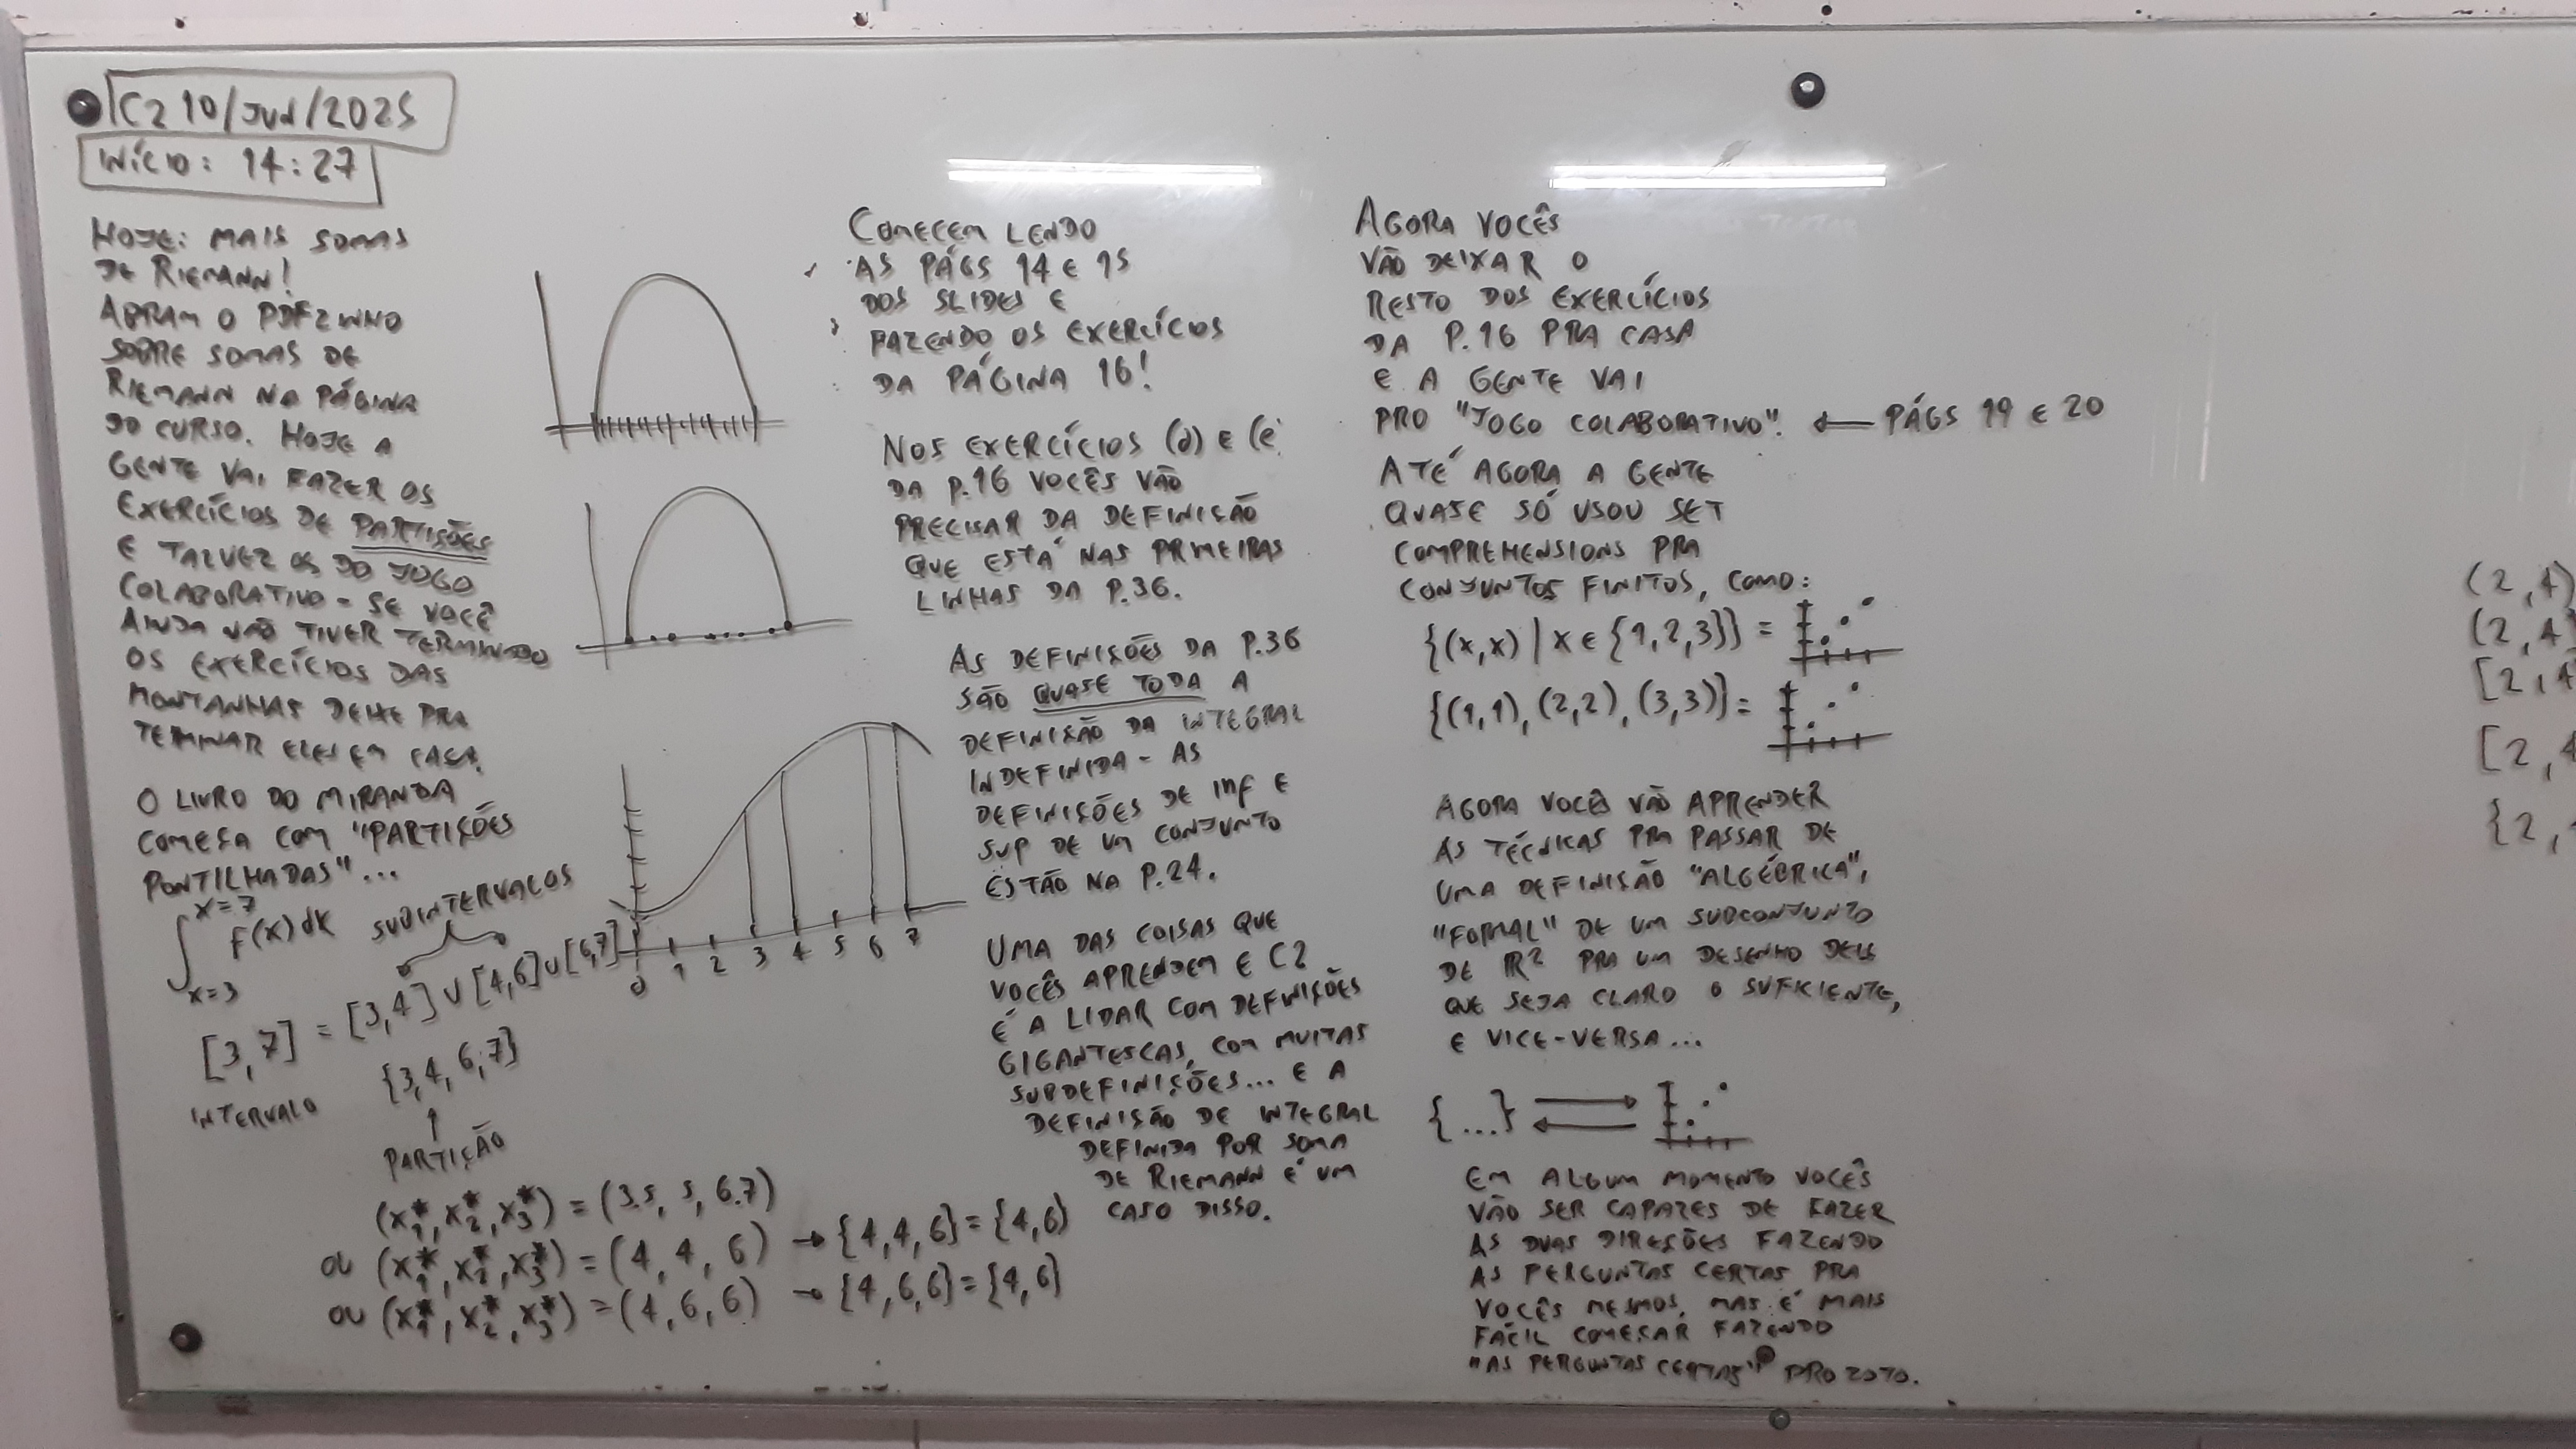 C2 10/JUN/2025
INÍCIO: 14:27
HOJE: MAIS SOMAS
DE RIEMANN!
ABRAM O PDFZINHO
SOBRE SOMAS DE
RIEMANN NA PÁGINA
DO CURSO. HOJE A
GENTE VAI FAZER OS
EXERCÍCIOS DE PARTIÇÕES
E TALVEZ OS DO JOGO
COLABORATIVO - SE VOCÊ
AINDA NÃO TIVER TERMINADO
OS EXERCÍCIOS DAS
MONTANHAS DEIXE PRA
TERMINAR ELES EM CASA.
O LIVRO DO MIRANDA
COMEÇA COM "PARTIÇÕES
PONTILHADAS"...
∫ x=7 x=3 F(x) dx
SUBINTERVALOS
[3,7] = [3,4] ∪ [4,6] ∪ [6,7]
INTERVALO
{3,4,6,7}
↑
PARTIÇÃO
0 1 2 3 4 5 6 7
(x₁*, x₂*, x₃*) = (3.5, 5, 6.7)
OU (x₁*, x₂*, x₃*) = (4, 4, 6) → {4,4,6} = {4,6}
OU (x₁*, x₂*, x₃*) = (4, 6, 6) → {4,6,6} = {4,6}
COMECEM LENDO
AS PÁGS 14 E 15
DOS SLIDES E
FAZENDO OS EXERCÍCIOS
DA PÁGINA 16!
NOS EXERCÍCIOS (d) E (e
DA P.16 VOCÊS VÃO
PRECISAR DA DEFINIÇÃO
QUE ESTÁ NAS PRMEIRAS
LINHAS DA P.36.
AS DEFINIÇÕES DA P.36
SÃO QUASE TODA A
DEFINIÇÃO DA INTEGRAL
INDEFINIDA - AS
DEFINIÇÕES DE INF E
SUP DE UM CONJUNTO
ESTÃO NA P.24.
UMA DAS COISAS QUE
VOCÊS APRENDEM E C2
É A LIDAR COM DEFINIÇÕES
GIGANTESCAS, COM MUITAS
SUBDEFINIÇÕES... E A
DEFINIÇÃO DE INTEGRAL
DEFINIDA POR SOMA
DE RIEMANN É UM
CASO DISSO.
AGORA VOCÊS
VÃO DEIXAR O
RESTO DOS EXERCÍCIOS
DA P.16 PRA CASA
E A GENTE VAI
PRO "JOGO COLABORATIVO". ← PÁGS 19 E 20
ATÉ AGORA A GENTE
QUASE SÓ USOU SET
COMPREHENSIONS PRA
CONJUNTOS FINITOS, COMO:
{(x,x) | x ∈ {1,2,3}} =
{(1,1), (2,2), (3,3)} =
AGORA VOCÊS VÃO APRENDER
AS TÉCNICAS PRA PASSAR DE
UMA DEFINIÇÃO "ALGÉBRICA",
"FORMAL" DE UM SUBCONJUNTO
DE ℝ² PRA UM DESENHO DELE
QUE SEJA CLARO O SUFICIENTE,
E VICE-VERSA...
{...}
EM ALGUM MOMENTO VOCÊS
VÃO SER CAPAZES DE FAZER
AS DUAS DIREÇÕES FAZENDO
AS PERGUNTAS CERTAS PRA
VOCÊS MESMOS, MAS É MAIS
FÁCIL COMEÇAR FAZENDO
"AS PERGUNTAS CERTAS" PRO ZOTO.
(2,4)
(2,4
[2,4
[2,4
{2,